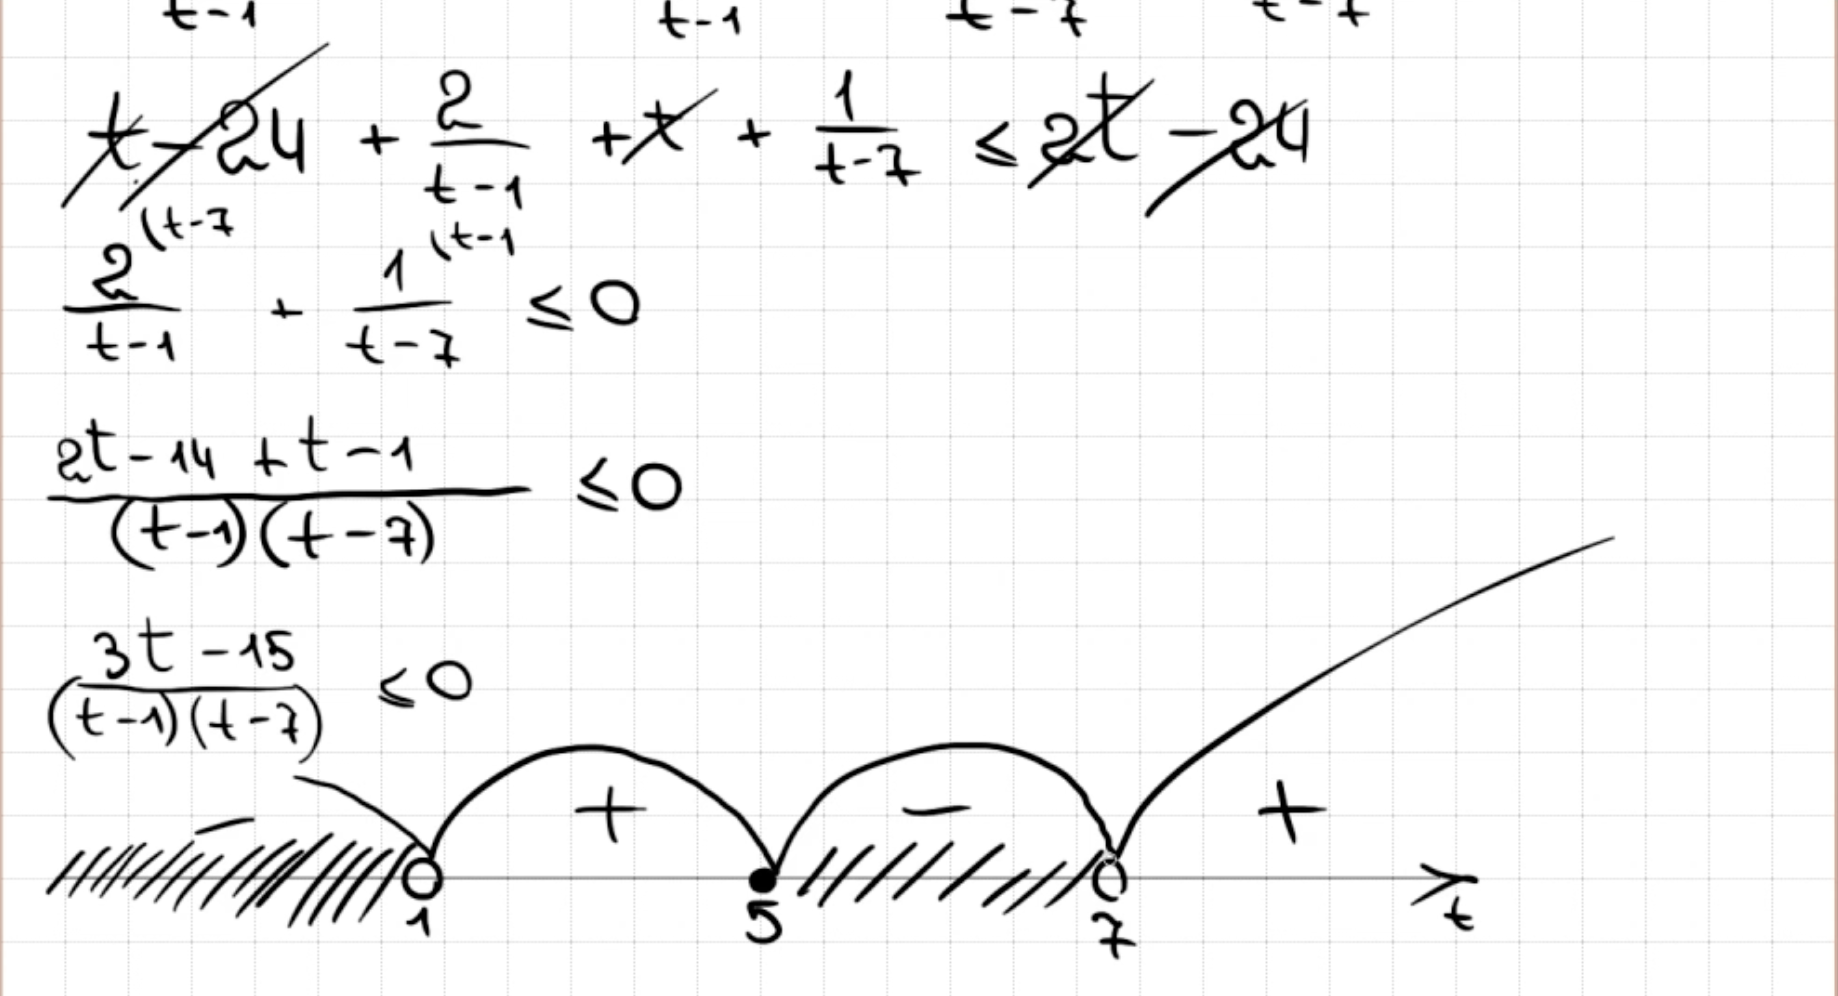 t-1 t-1 t-7 t-7
t-24 + 2/(t-1) + t + 1/(t-7) ≤ 2t - 24
2/(t-1) (t-7 + 1/(t-7) (t-1 ≤ 0
(2t-14+t-1)/((t-1)(t-7)) ≤ 0
(3t-15)/((t-1)(t-7)) ≤ 0
- + - +
1 5 7 t